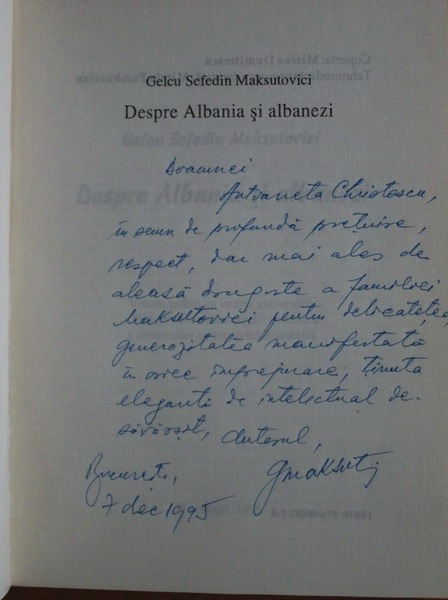 Gelcu Sefedin Maksutovici
Despre Albania și albanezi
Doamnei
Antoaneta Christescu,
în semn de profundă prețuire,
respect, dar mai ales de
aleasă dragoste a familiei
Maksutovici pentru delicatețea,
generozitatea manifestată
în orice împrejurare, ținuta
elegantă de intelectual de-
săvârșit, Autorul,
București,
7 dec 1995